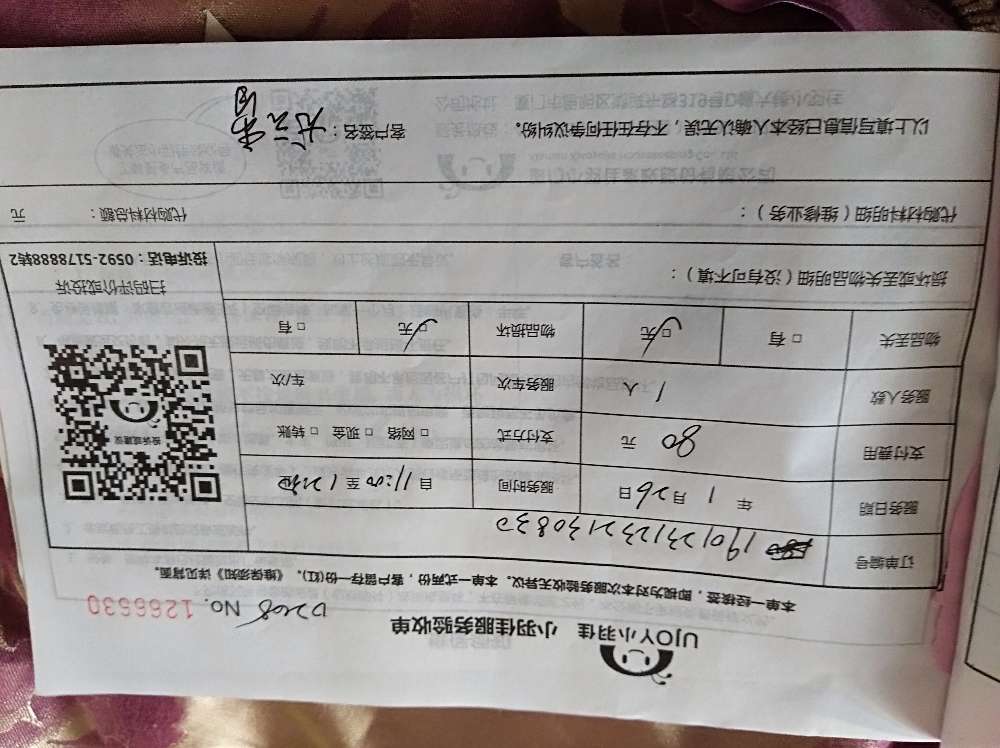 UJOY小羽佳 小羽佳服务验收单
No. 1266630
本单一经核签，即视为对本次服务验收无异议。本单一式两份，客户留存一份(红)。《维保须知》详见背面。
订单编号 1901231232130830
服务日期 年 1 月 26 日 服务时间 自 11:00 至
支付费用 80 元 支付方式 □ 网络 □ 现金 □ 转账
服务人数 1 人 服务车次 车/次
物品丢失 □ 有 □ 无 物品损坏 □ 无 □ 有
投诉或建议
扫码评价或投诉
投诉电话：0592-5178888转2
损坏或丢失物品明细（没有可不填）：
代购材料明细（维修业务）： 代购材料总额： 元
以上填写信息已经本人确认无误，不存在任何争议纠纷。 客户签名：